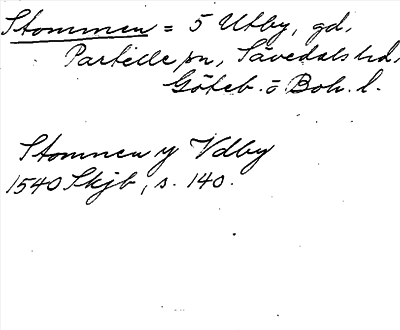 Stommen = 5 Utby, gd,
Partille sn, Sävedals hd,
Göteb. o Boh. l.
Stomnen y Vdby
1540 Skjb, s. 140.